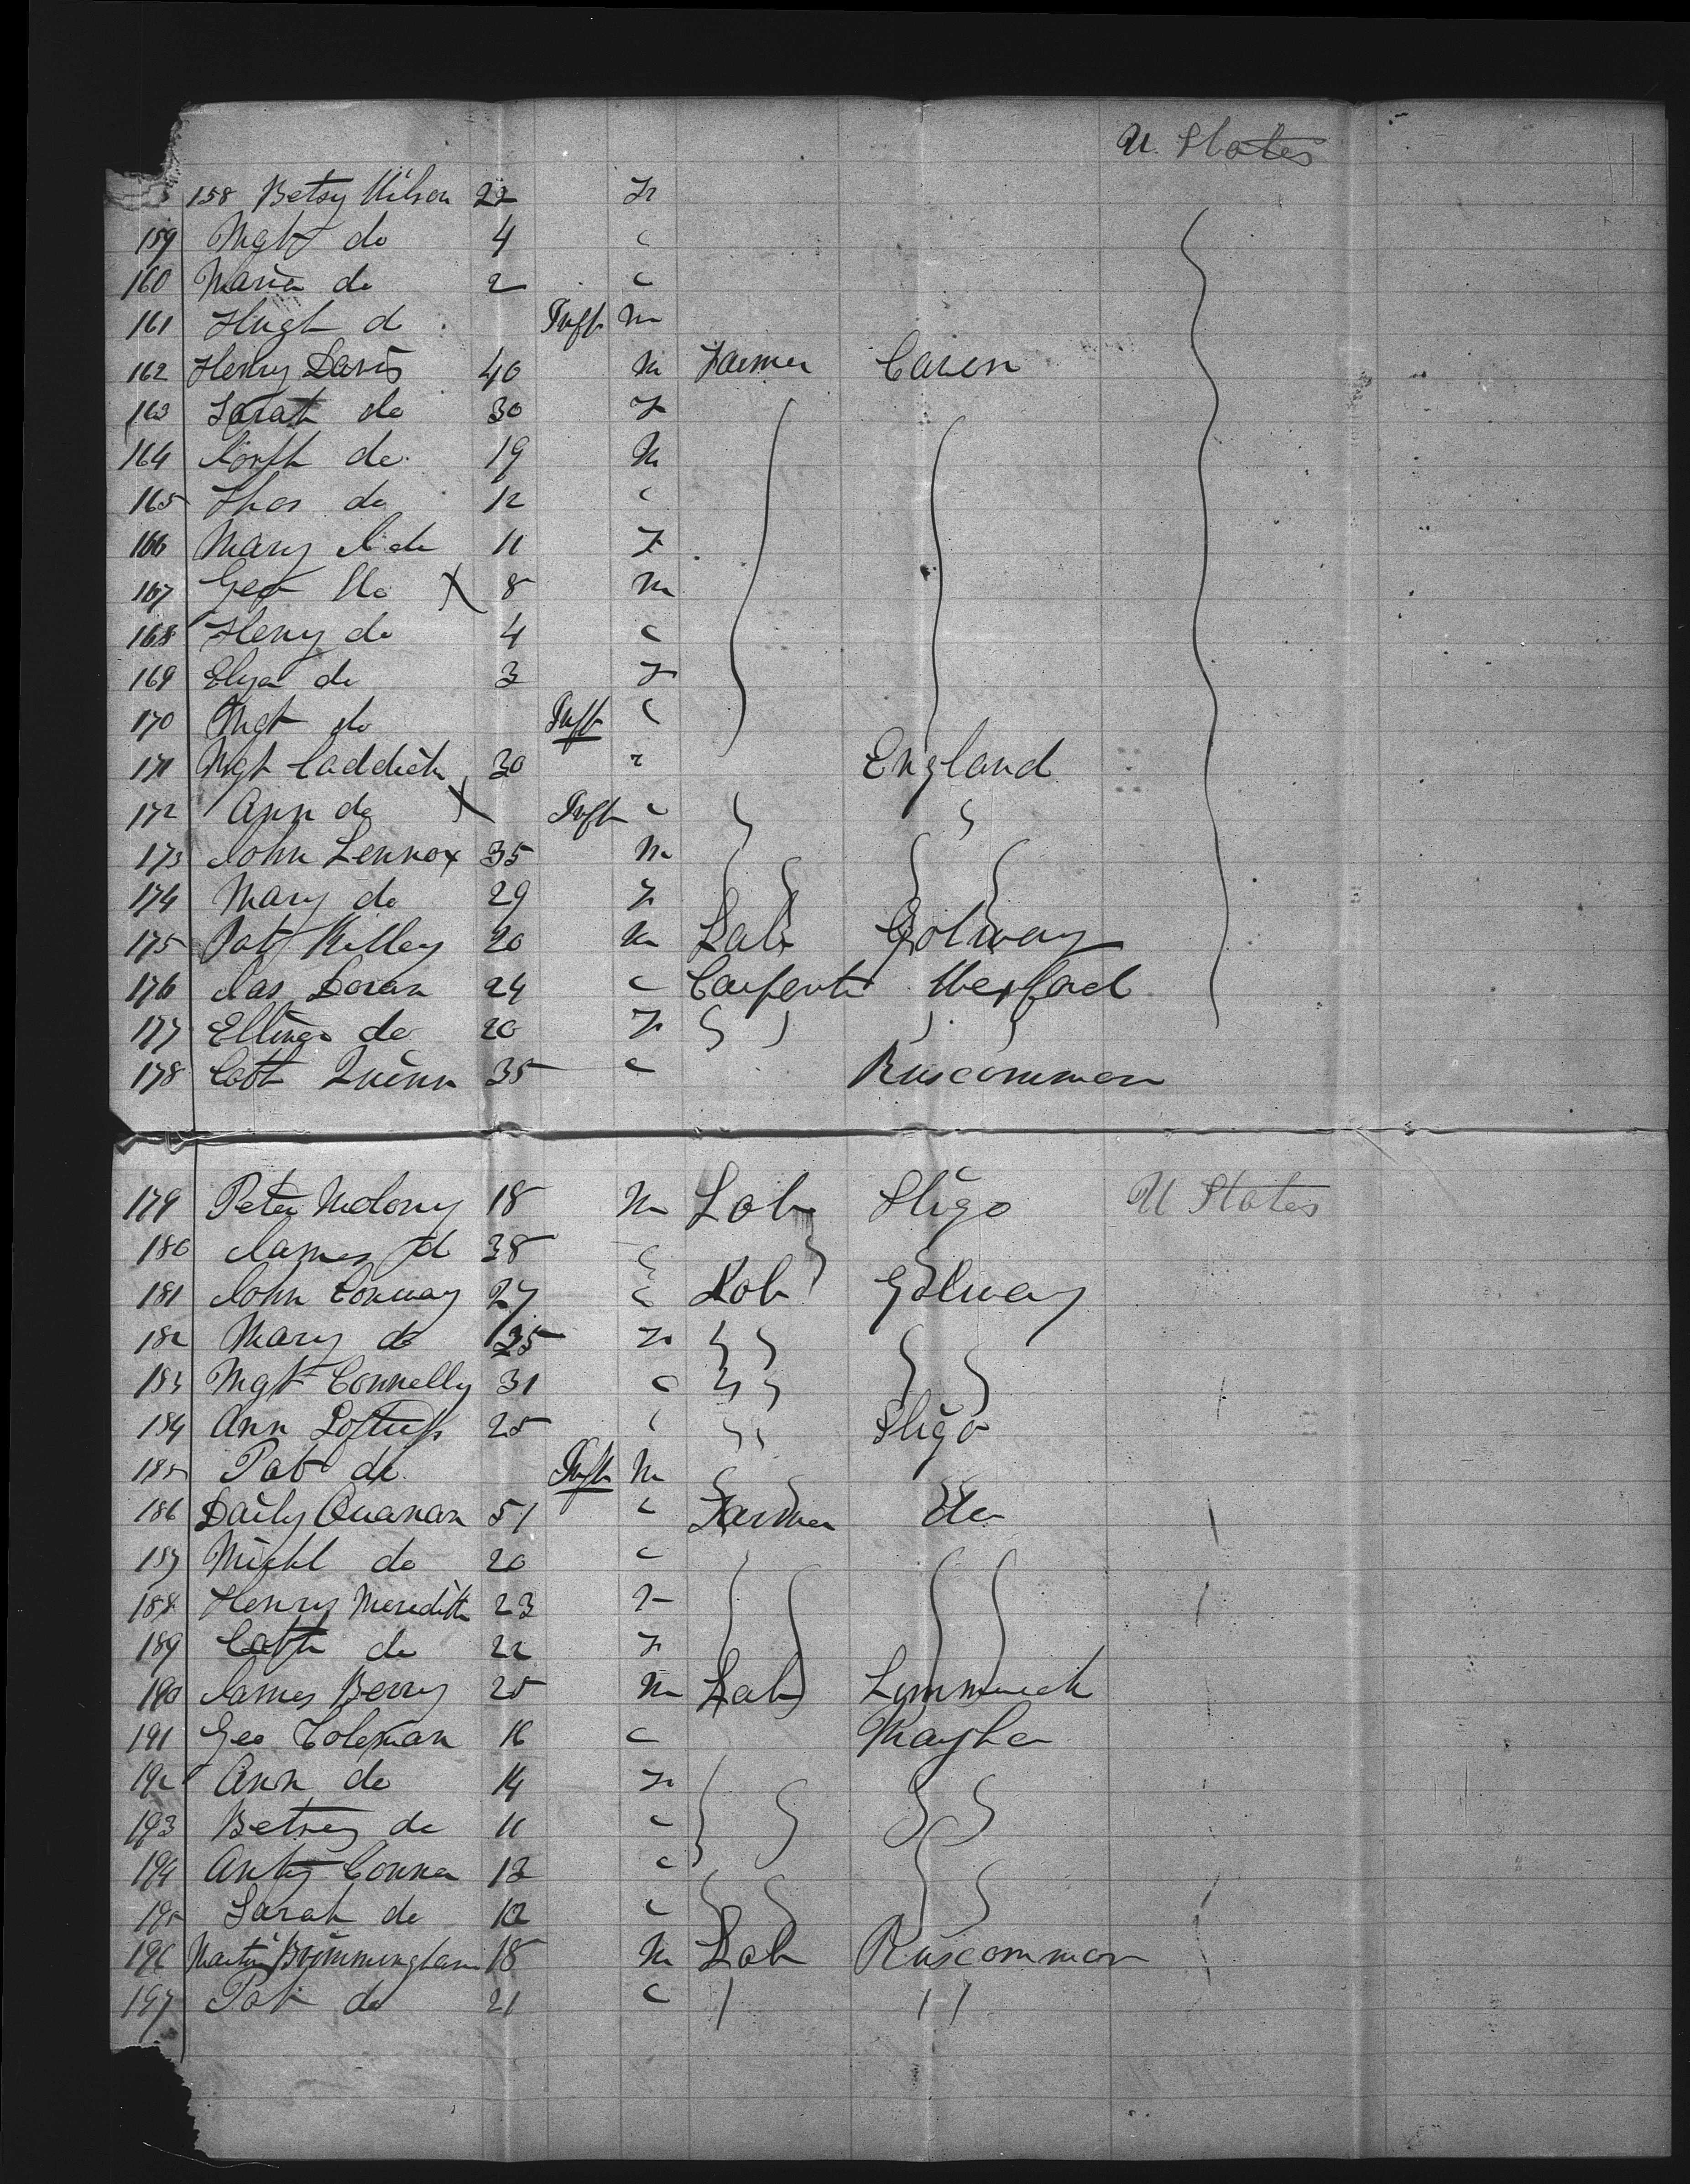 U. States
158 Betsy Wilson 22 F
159 Mgt do 4 "
160 Maria do 2 "
161 Hugh d Inft M
162 Henry Davis 40 M Farmer Caven
163 Sarah do 30 F
164 do 19 M
165 Thos do 12 "
166 Mary J do 11 F
167 Geo do X 8 M
168 Henry do 4 "
169 Eliza do 3 F
170 Mgt do Inft "
171 Mgt Caddick 30 " England
172 Ann do X Inft "
173 John Lennox 35 M
174 Mary do 29 F
175 Pat Killey 20 M Lab Golway
176 Jas Doran 24 " Carpentr Wexford
177 Ellinor do 20 F
178 Cath Quinn 35 " Ruscommon
179 Peter Molony 18 M Lab Sligo U States
180 James d 38 "
181 John Conway 27 " Lab Golway
182 Mary do 25 F
183 Mgt Connelly 31 "
184 Ann Loftuss 25 " Sligo
185 Pat do Inft M
186 Daily 51 " Farmer do
187 Michl do 20 "
188 Henry Meredith 23
189 Cath do 22 F
190 James Berry 25 M Lab Limmrick
191 Geo Coleman 16 "
192 Ann do 14 F
193 Betsey do 11 "
194 Anty Conner 13 "
195 Sarah do 12 "
196 Martin Brimmingham 18 M Lab Ruscommon
197 Pat do 21 " " "